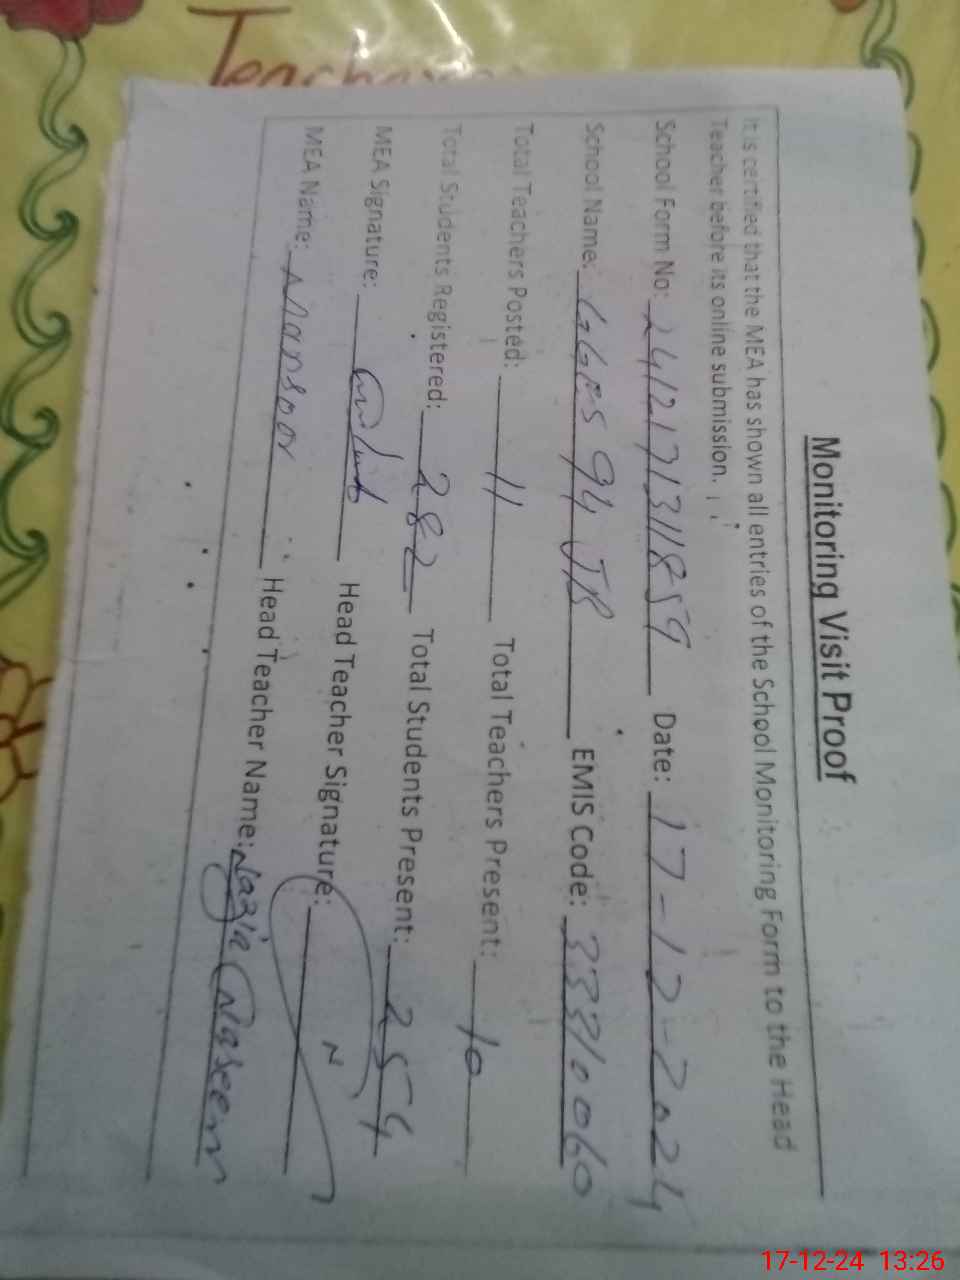 Teach
Monitoring Visit Proof
It is certified that the MEA has shown all entries of the School Monitoring Form to the Head
Teacher before its online submission.
School Form No: 241217131859 Date: 17-12-2024
School Name: GGES 94 JB EMIS Code: 33310060
Total Teachers Posted: 11 Total Teachers Present: 10
Total Students Registered: 282 Total Students Present: 254
MEA Signature: Head Teacher Signature: N
MEA Name: Mansoor Head Teacher Name: Nazia Naseem
17-12-24 13:26